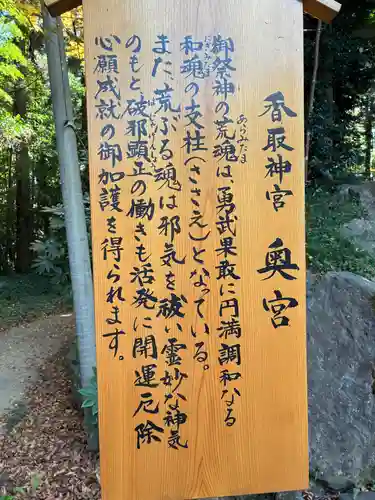 香取神宮 奥宮
御祭神の荒魂は勇武果敢に円満調和なる
あらみたま
和魂の支柱(ささえ)となっている。
にぎみたま
また、荒ぶる魂は邪気を祓い霊妙な神気
のもと破邪顕正の働きも活発に開運厄除
心願成就の御加護を得られます。